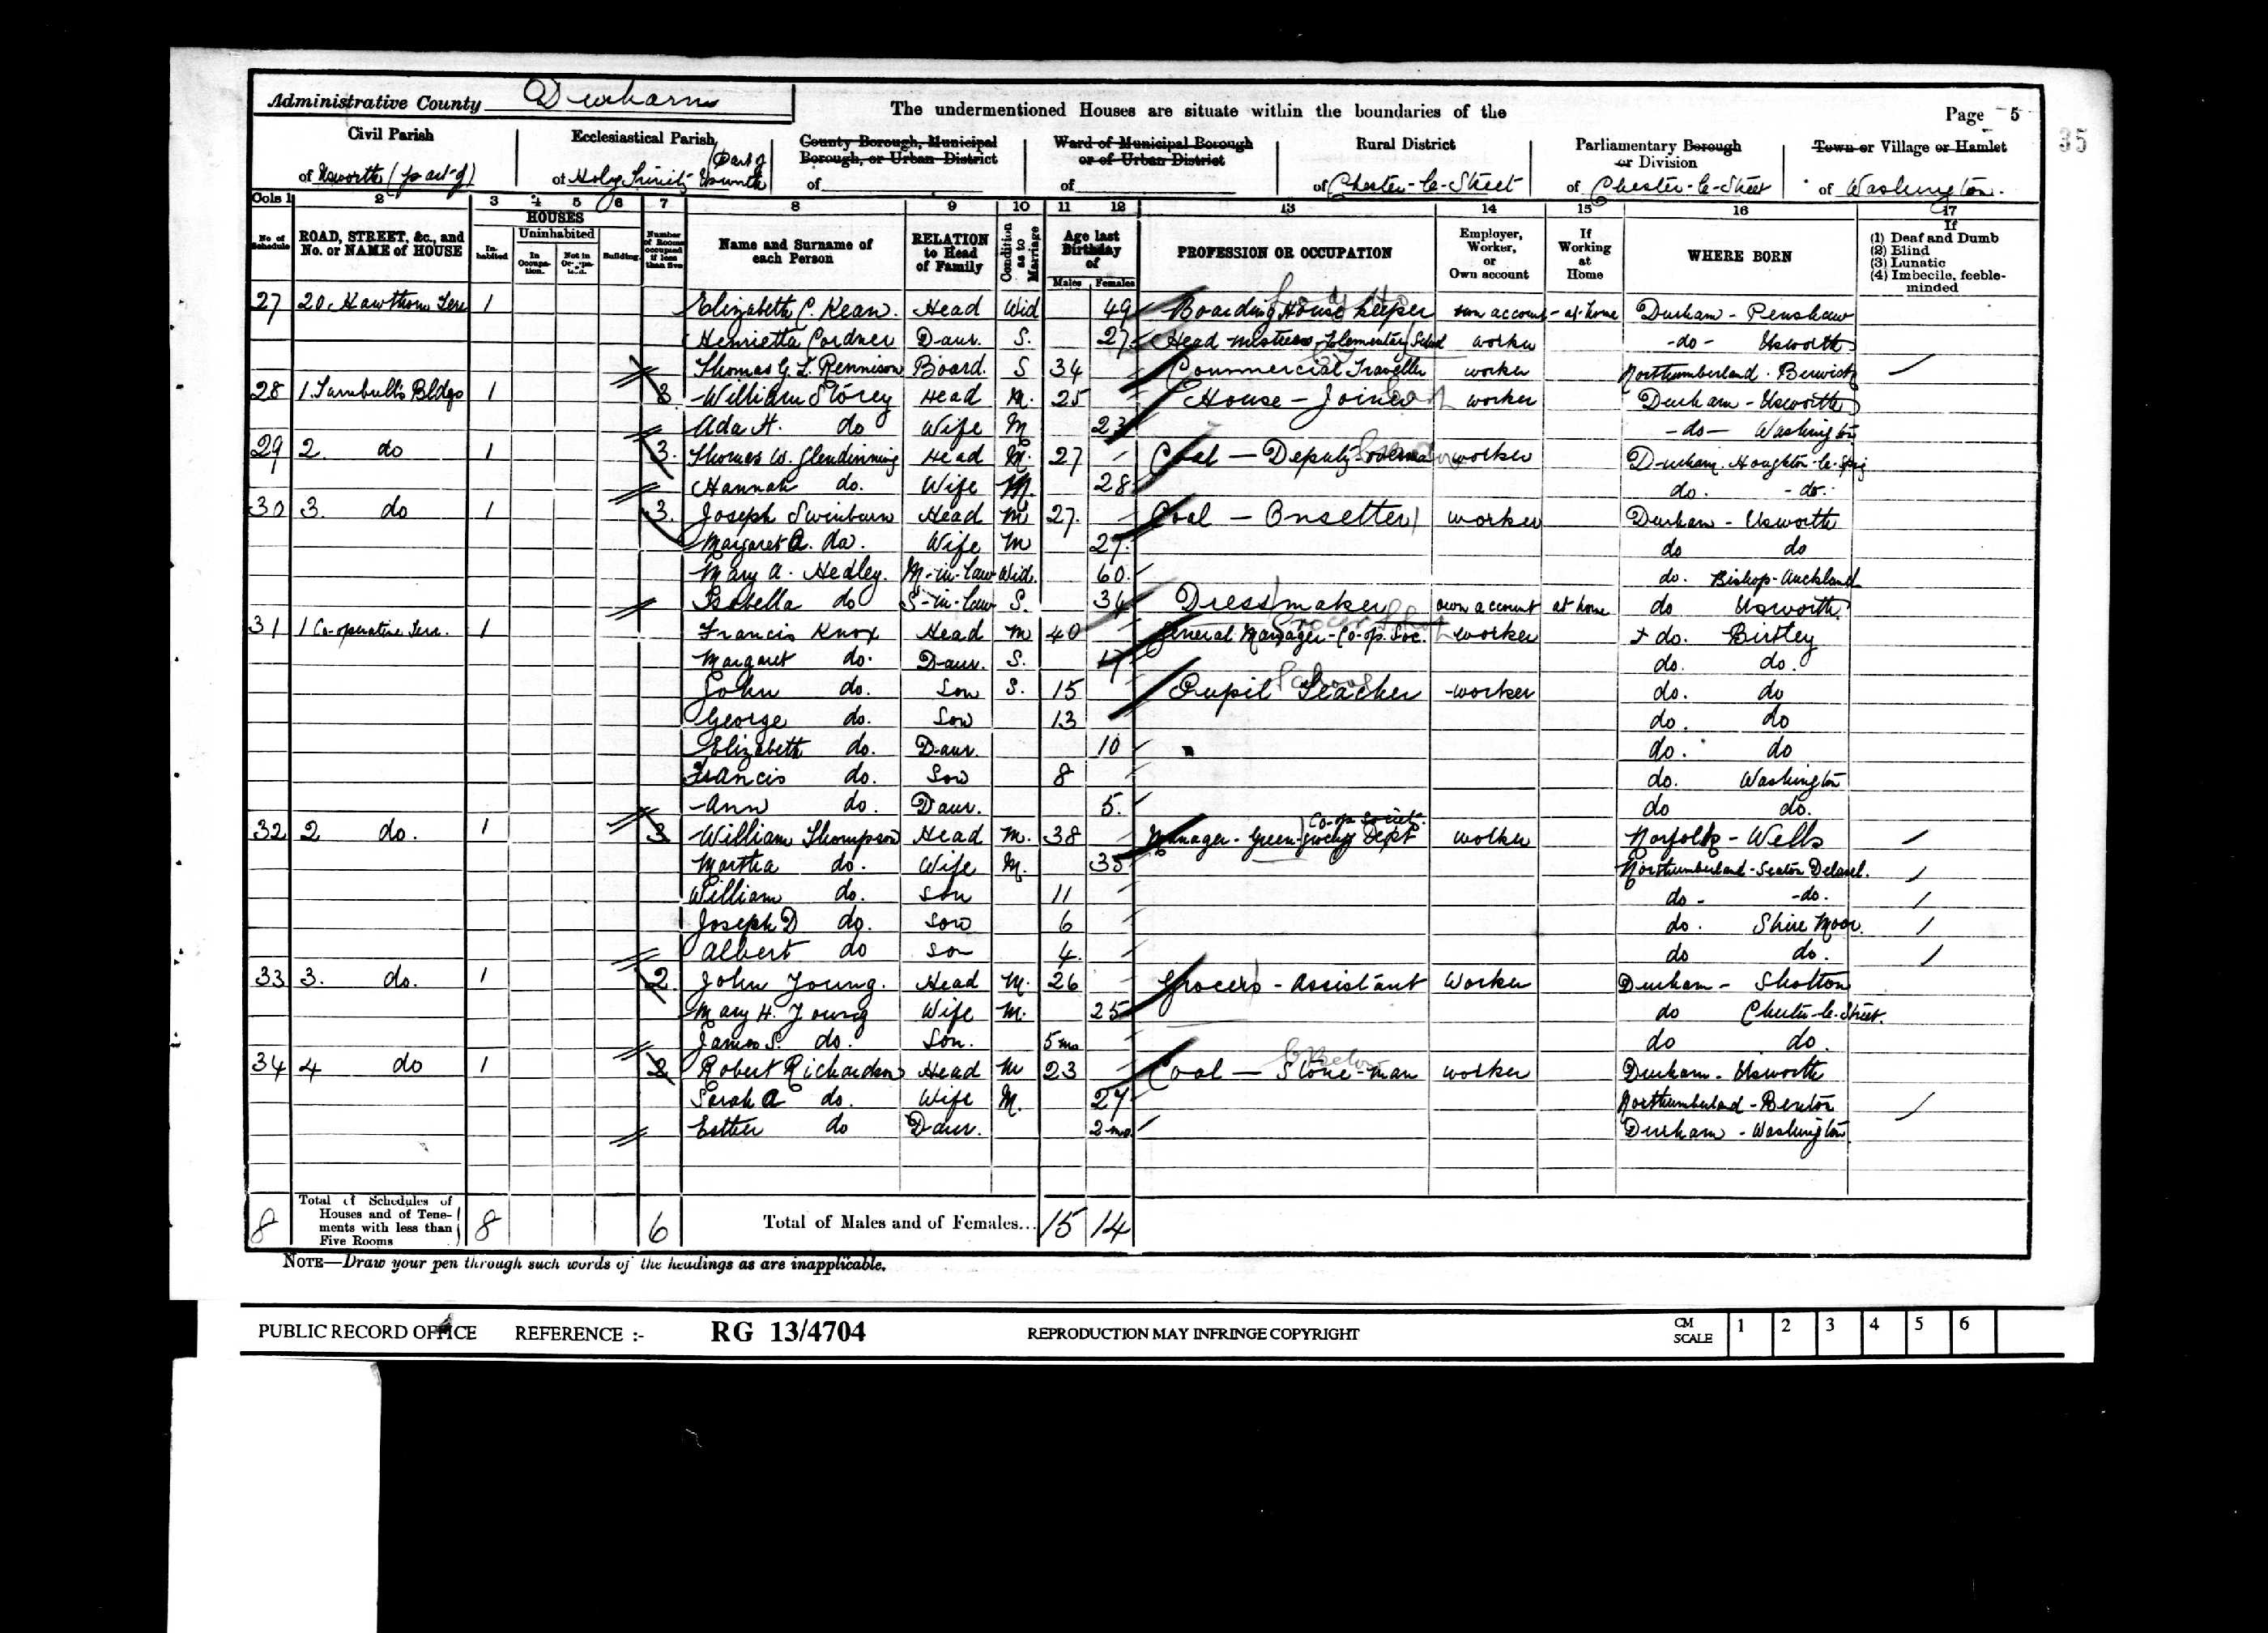 Administrative County Durham
The undermentioned Houses are situate within the boundaries of the
Page 5
35
Civil Parish
of Usworth (part of)
Ecclesiastical Parish
of Holy Trinity Usworth (Part of
County Borough, Municipal Borough, or Urban District
of
Ward of Municipal Borough or of Urban District
of
Rural District
of Chester-le-Street
Parliamentary Borough or Division
of Chester-le-Street
Town or Village or Hamlet
of Washington.
Cols 1 2 3 4 5 6 7 8 9 10 11 12 13 14 15 16 17
No. of Schedule
ROAD, STREET, &c., and No. or NAME of HOUSE
HOUSES
Inhabited
Uninhabited
In Occupation.
Not in Occupation.
Building.
Number of Rooms occupied if less than five
Name and Surname of each Person
RELATION to Head of Family
Condition as to Marriage
Age last Birthday of
Males Females
PROFESSION OR OCCUPATION
Employer, Worker, or Own account
If Working at Home
WHERE BORN
If
(1) Deaf and Dumb
(2) Blind
(3) Lunatic
(4) Imbecile, feeble-minded
27 20 Hawthorn Terr 1 Elizabeth C. Kean. Head Wid 49 Boarding House Keeper own account - at home Durham - Penshaw
Henrietta Cordner Daur. S. 27 Head Mistress Elementary School worker -do- Usworth
Thomas G. T. Rennison Board. S 34 Commercial Traveller worker Northumberland. Berwick
28 1. Turnbull's Bldgs 1 3 William Storey Head M. 25 House - Joiner worker Durham - Usworth
Ada H. do Wife M 23 -do- Washington
29 2 do 1 3. Thomas W. Glendinning Head M. 27 Coal - Deputy worker Durham. Houghton-le-Spig
Hannah do. Wife M. 28 do. -do.
30 3. do 1 3. Joseph Swinburn Head M 27. Coal - Onsetter worker Durham - Usworth
Margaret A. do. Wife M 27. do do
Mary A. Hedley. M-in-law Wid. 60. do. Bishop-Auckland
Isabella do S-in-law S. 34 Dressmaker own account at home do Usworth
31 1 Co-operative Terr. 1 Francis Knox Head M 40 General Manager - Co-op. Soc. worker + do. Birtley
Margaret do. Daur. S. 17 do. do.
John do. Son S. 15 Pupil Teacher School -worker do. do
George do. Son 13 do. do
Elizabeth do. Daur. 10 do. do
Francis do. Son 8 do. Washington
Ann do. Daur. 5. do do.
32 2 do. 1 3 William Thompson Head M. 38 Manager - Green-grocery Dept Co-op Societ. worker Norfolk - Wells
Martha do. Wife M. 35 Northumberland - Seaton Delavel.
William do. Son 11 do - -do.
Joseph D do. Son 6 do. Shire Moor.
Albert do Son 4. do do.
33 3. do. 1 2 John Young. Head M. 26 Grocers - Assistant Worker Durham - Shotton
Mary H. Young Wife M. 25 do Chester-le-Street.
James S. do. Son. 5 mo do do.
34 4 do 1 2 Robert Richardson Head M 23 Coal - Stone-man worker Durham. Usworth
Sarah A do. Wife M. 27 Northumberland - Benton
Esther do Daur. 2 mo. Durham - Washington
8 Total of Schedules of Houses and of Tenements with less than Five Rooms 8 6 Total of Males and of Females... 15 14
NOTE—Draw your pen through such words of the headings as are inapplicable.
PUBLIC RECORD OFFICE REFERENCE :- RG 13/4704 REPRODUCTION MAY INFRINGE COPYRIGHT CM SCALE 1 2 3 4 5 6